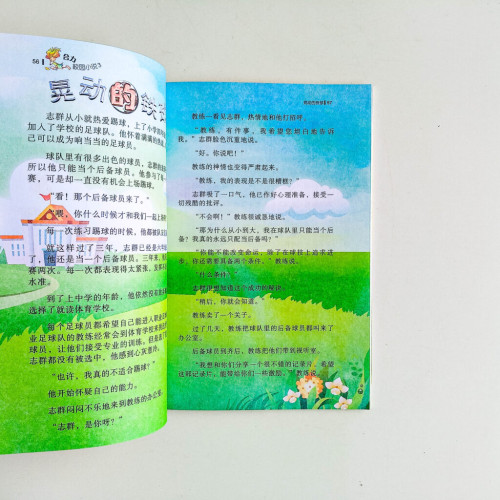 56
校园小说
晃动的铁
志群从小就热爱踢球，上了小学
加入了学校的足球队。他怀着满满的
己可以成为响当当的足球员。
球队里有很多出色的球员，志群的
所以他只能当个后备球员。他参与了
赛，可是却一直没有机会上场踢球。
“看！那个后备球员来了。”
“喂，你什么时候才和我们一起上
每一次练习踢球的时候，他都
就这样过了三年，志群已经是六
了，他还是当一个后备球员。三年来，
赛两次。每一次都表现得太紧张，
球员。
到了上中学的年龄，他依然没
选择了就读体育学校。
每个足球员都希望自己能进入职
业足球队的教练经常会到体育学校来
球员，让他们接受专业的训练。但是
志群都没有被选中。他感到心灰意冷。
“也许，我真的不适合踢球？”
他开始怀疑自己的能力。
志群闷闷不乐地来到教练的办公室。
“志群，是你呀？”
教练一看见志群，热情地和他打招呼。
“教练，有件事，我希望您坦白地告诉
我。”志群脸色沉重地说。
“好。你说吧！”
教练的神情也变得严肃起来。
“教练，我的表现是不是很糟糕？”
志群吸了一口气，他已作好心理准备，接受一
切残酷的批评。
“不会啊！”教练很诚恳地说。
“那为什么从小到大，我在球队里只能当个后
备？我真的永远只配当后备吗？”
“你能不能改变命运，除了在球技上追求进
步，你还需要具备两个条件。”教练说。
“什么条件？”
志群很想知道这个成功的秘诀。
“稍后，你就会知道。”
教练卖了一个关子。
过了几天，教练把球队里的后备球员都叫来了
办公室。
后备球员到齐后，教练把他们带到视听室。
“我想和你们分享一个很不错的记录片。希望
这部记录片，能带给你们一些激励。”教练说。